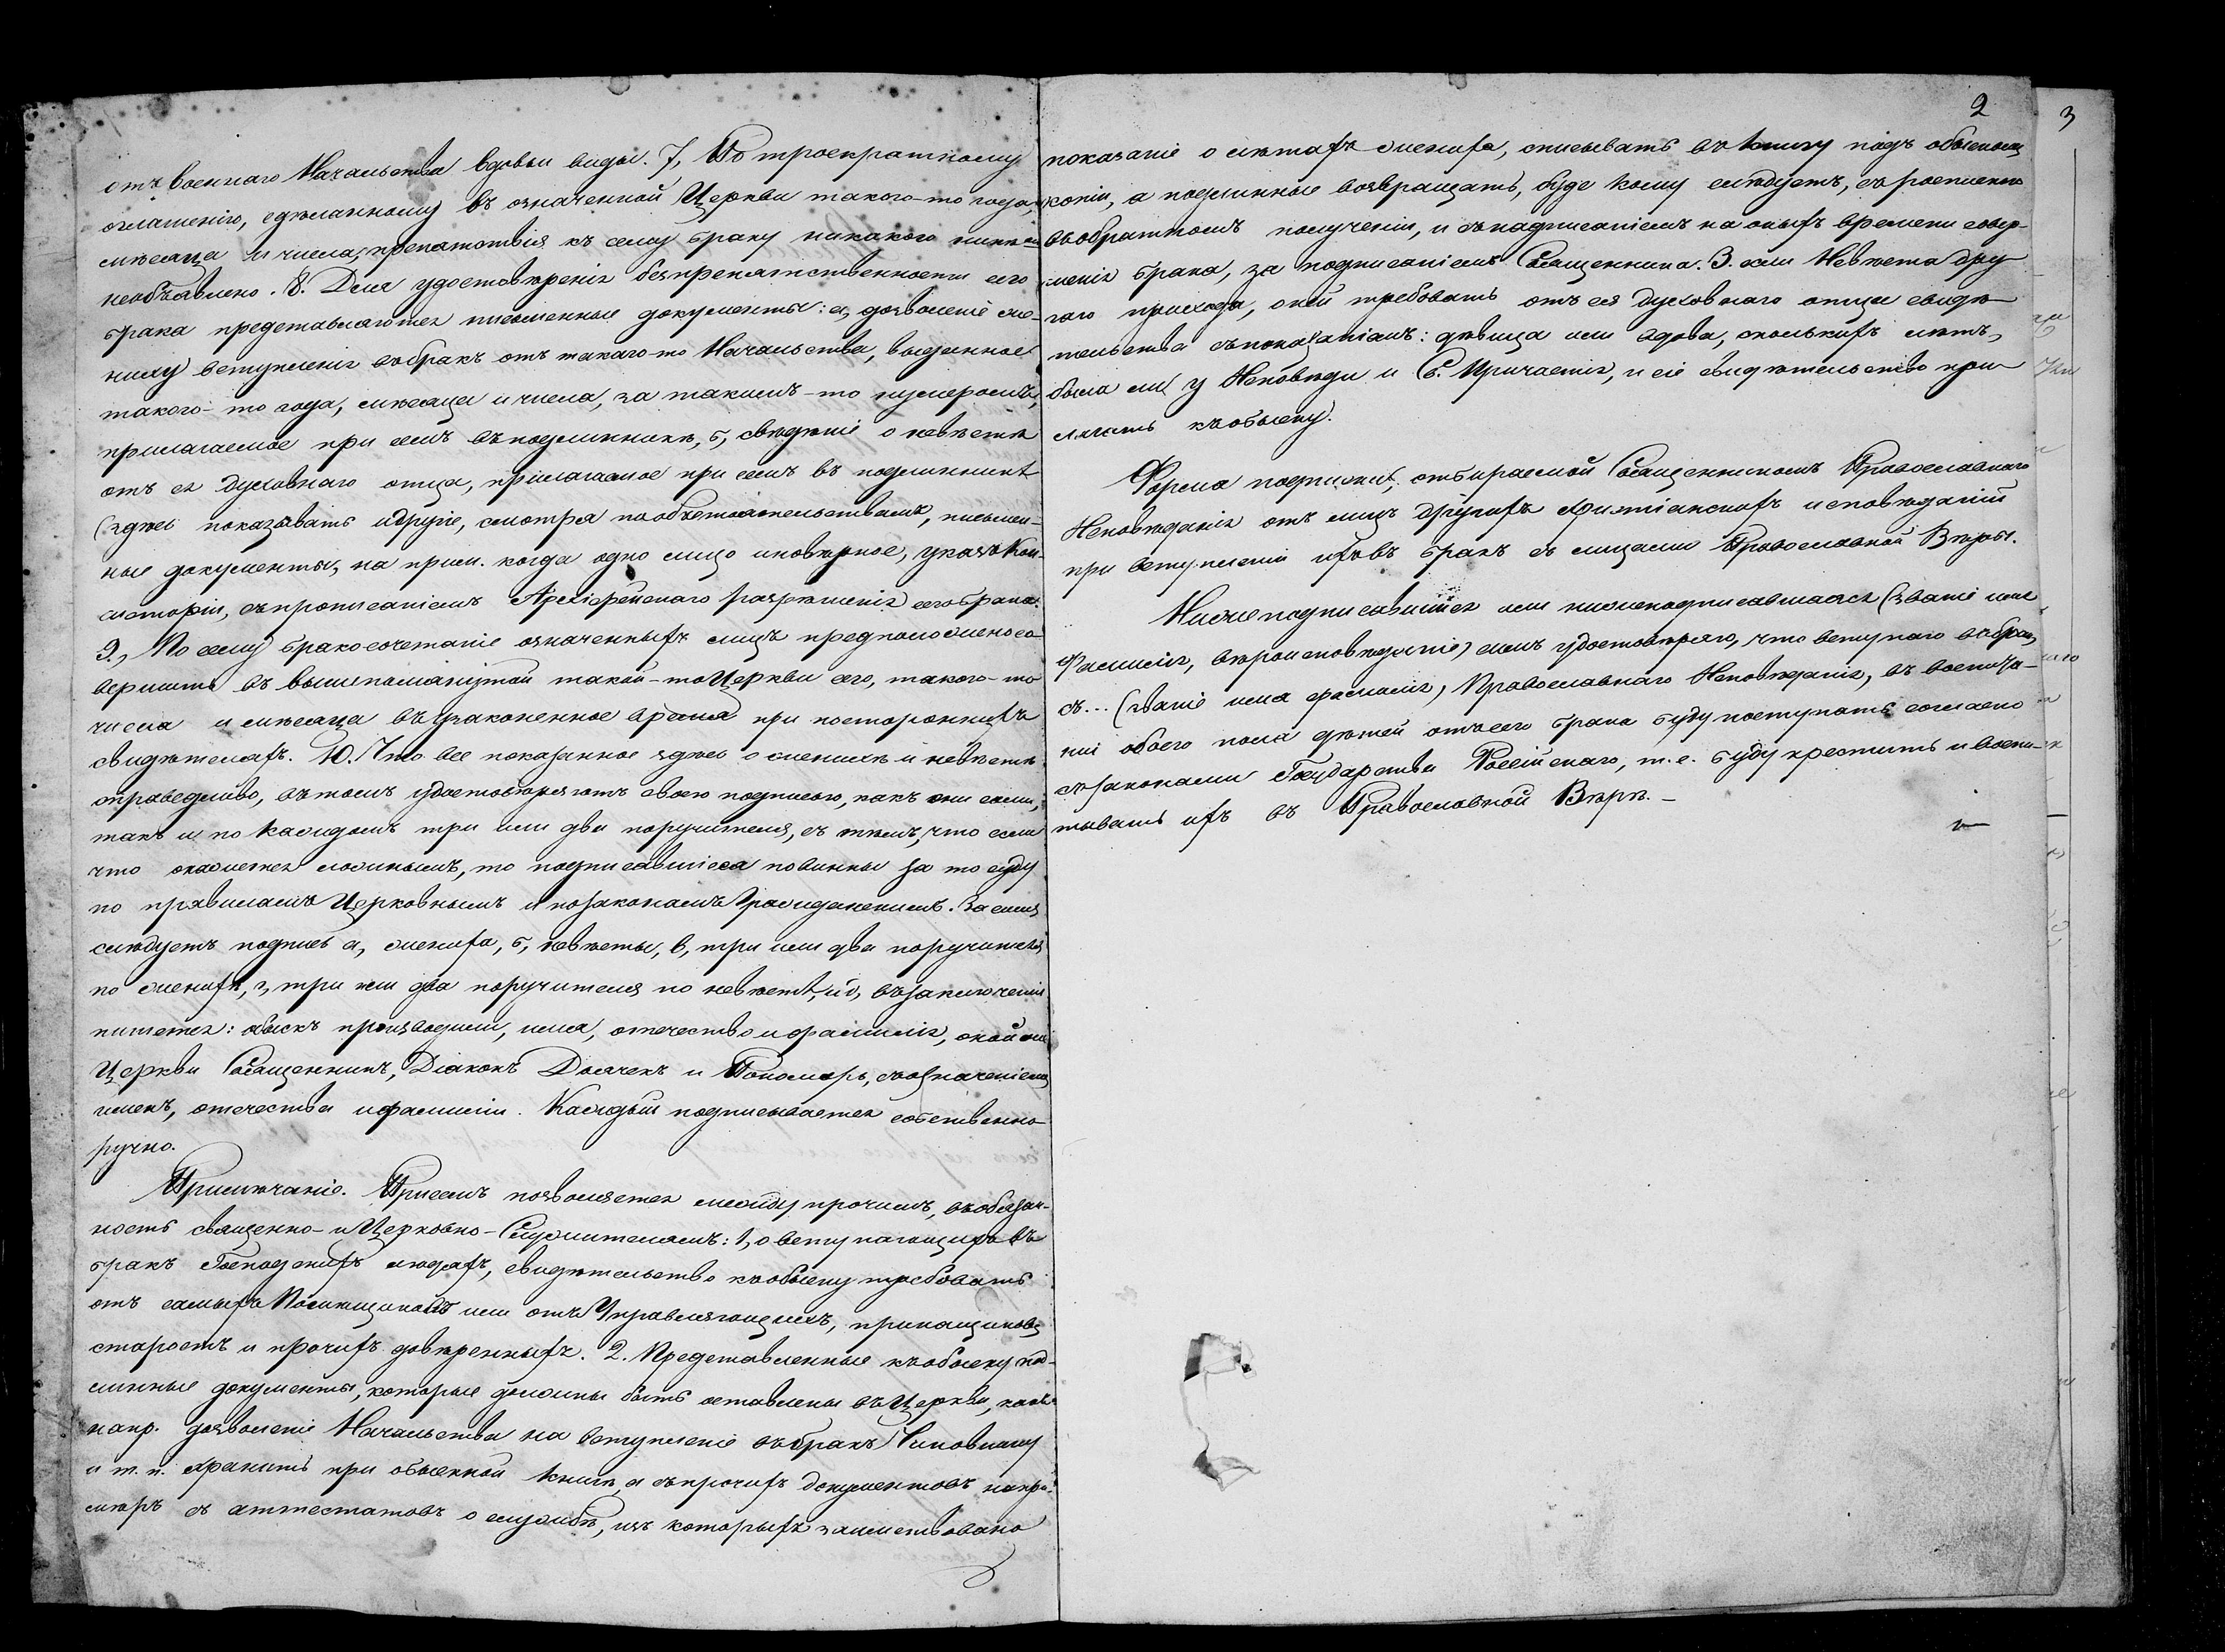 отъ военнаго Начальства вдовьи виды. 7, По троекратному
оглашенію, сдѣланному въ означенной Церкви такого-то года,
мѣсяца и числа, препятствія къ сему браку никакого никѣмъ
необъявлено. 8. Для удостовѣренія безпрепятственности сего
брака представляются письменные документы: а, дозволеніе же-
ниху вступленія въ бракъ отъ такаго-то Начальства, выданное
такого-то года, мѣсяца и числа, за такимъ-то нумеромъ,
прилагаемое при семъ въ подлинникѣ, б, свѣдѣніе о невѣстѣ
отъ ея духовнаго отца, прилагаемое при семъ въ подлинникѣ
(здѣсь показывать и другіе, смотря по обстоятельствамъ, письмен-
ные документы, на прим. когда одно лицо иновѣрное, указъ Кон-
систоріи, съ прописаніемъ Архіерейскаго разрѣшенія сего брака.
9., По сему бракосочетаніе означенныхъ лицъ предположено со-
вершить въ вышепомянутой такой-то Церкви сего, такого-то
числа и мѣсяца въ узаконенное время при постороннихъ
свидѣтеляхъ. 10. Что все показанное здѣсь о женихѣ и невѣстѣ
справедливо, въ томъ удостовѣряютъ своею подписью, какъ они сами,
такъ и по каждомъ три или два поручителя, съ тѣмъ, что если
что окажется ложнымъ, то подписавшіеся повинны за то суду
по правиламъ Церковнымъ и по законамъ Гражданскимъ. За симъ
слѣдуетъ подпись а, жениха, б, невѣсты, в, три или два поручителя
по женихѣ, г, три или два поручителя по невѣстѣ, и д, въ заключеніи
пишется: обыскъ производили, имя, отечество и фамилія, оной
Церкви Священникъ, Діаконъ Дьячекъ и Пономарь, съ означеніемъ
именъ, отечества и фамиліи. Каждый подписывается собственно-
ручно.
Примѣчаніе. При семъ позволяется между прочимъ, въ обязан-
ность священно- и Церковно-Служителямъ: 1, о вступающихъ въ
бракъ Господскихъ людяхъ, свидѣтельство къ обыску требовать
отъ самыхъ Помѣщиковъ или отъ Управляющихъ, прикащиковъ
старостъ и прочихъ довѣренныхъ. 2. Представленные къ обыску под-
линные документы, которые должны быть оставлены въ Церкви, какъ
напр. дозволеніе Начальства на вступленіе въ бракъ Чиновнику
и т. п. хранить при обыскной книгѣ, а съ прочихъ документовъ напри-
мѣръ съ аттестатовъ о службѣ, изъ которыхъ заимствовано
2
показаніе о лѣтахъ жениха, списывать въ книгу подъ обыскомъ
копіи, а подлинные возвращать, буде кому слѣдуетъ, съ роспискою
въ обратномъ полученіи, и съ надписаніемъ на оныхъ времени совер-
шенія брака, за подписаніемъ Священника. 3. если Невѣста дру-
гаго прихода, о ней требовать отъ ея духовнаго отца свидѣ-
тельства съ показаніемъ: дѣвица или вдова, сколькихъ лѣтъ,
была ли у Исповѣди и С. Причастія, и сіе свидѣтельство при-
лагать къ обыску.
Форма подписки, отбираемой Священникомъ Православнаго
Исповѣданія отъ лицъ другихъ христіанскихъ исповѣданій
при вступленіи ихъ въ бракъ съ лицами Православной Вѣры.
Нижеподписавшійся или нижеподписавшаяся (званіе имя
Фамилія, вѣроисповѣданіе) симъ удостовѣряю, что вступаю въ бракъ
съ... (званіе имя фамилія) Православнаго Исповѣданія, въ воспита-
ніи обоего пола дѣтей отъ сего брака буду поступать согласно
съ законами Государства Россійскаго, т. е. буду крестить и воспи-
тывать ихъ въ Православной Вѣрѣ.-
3